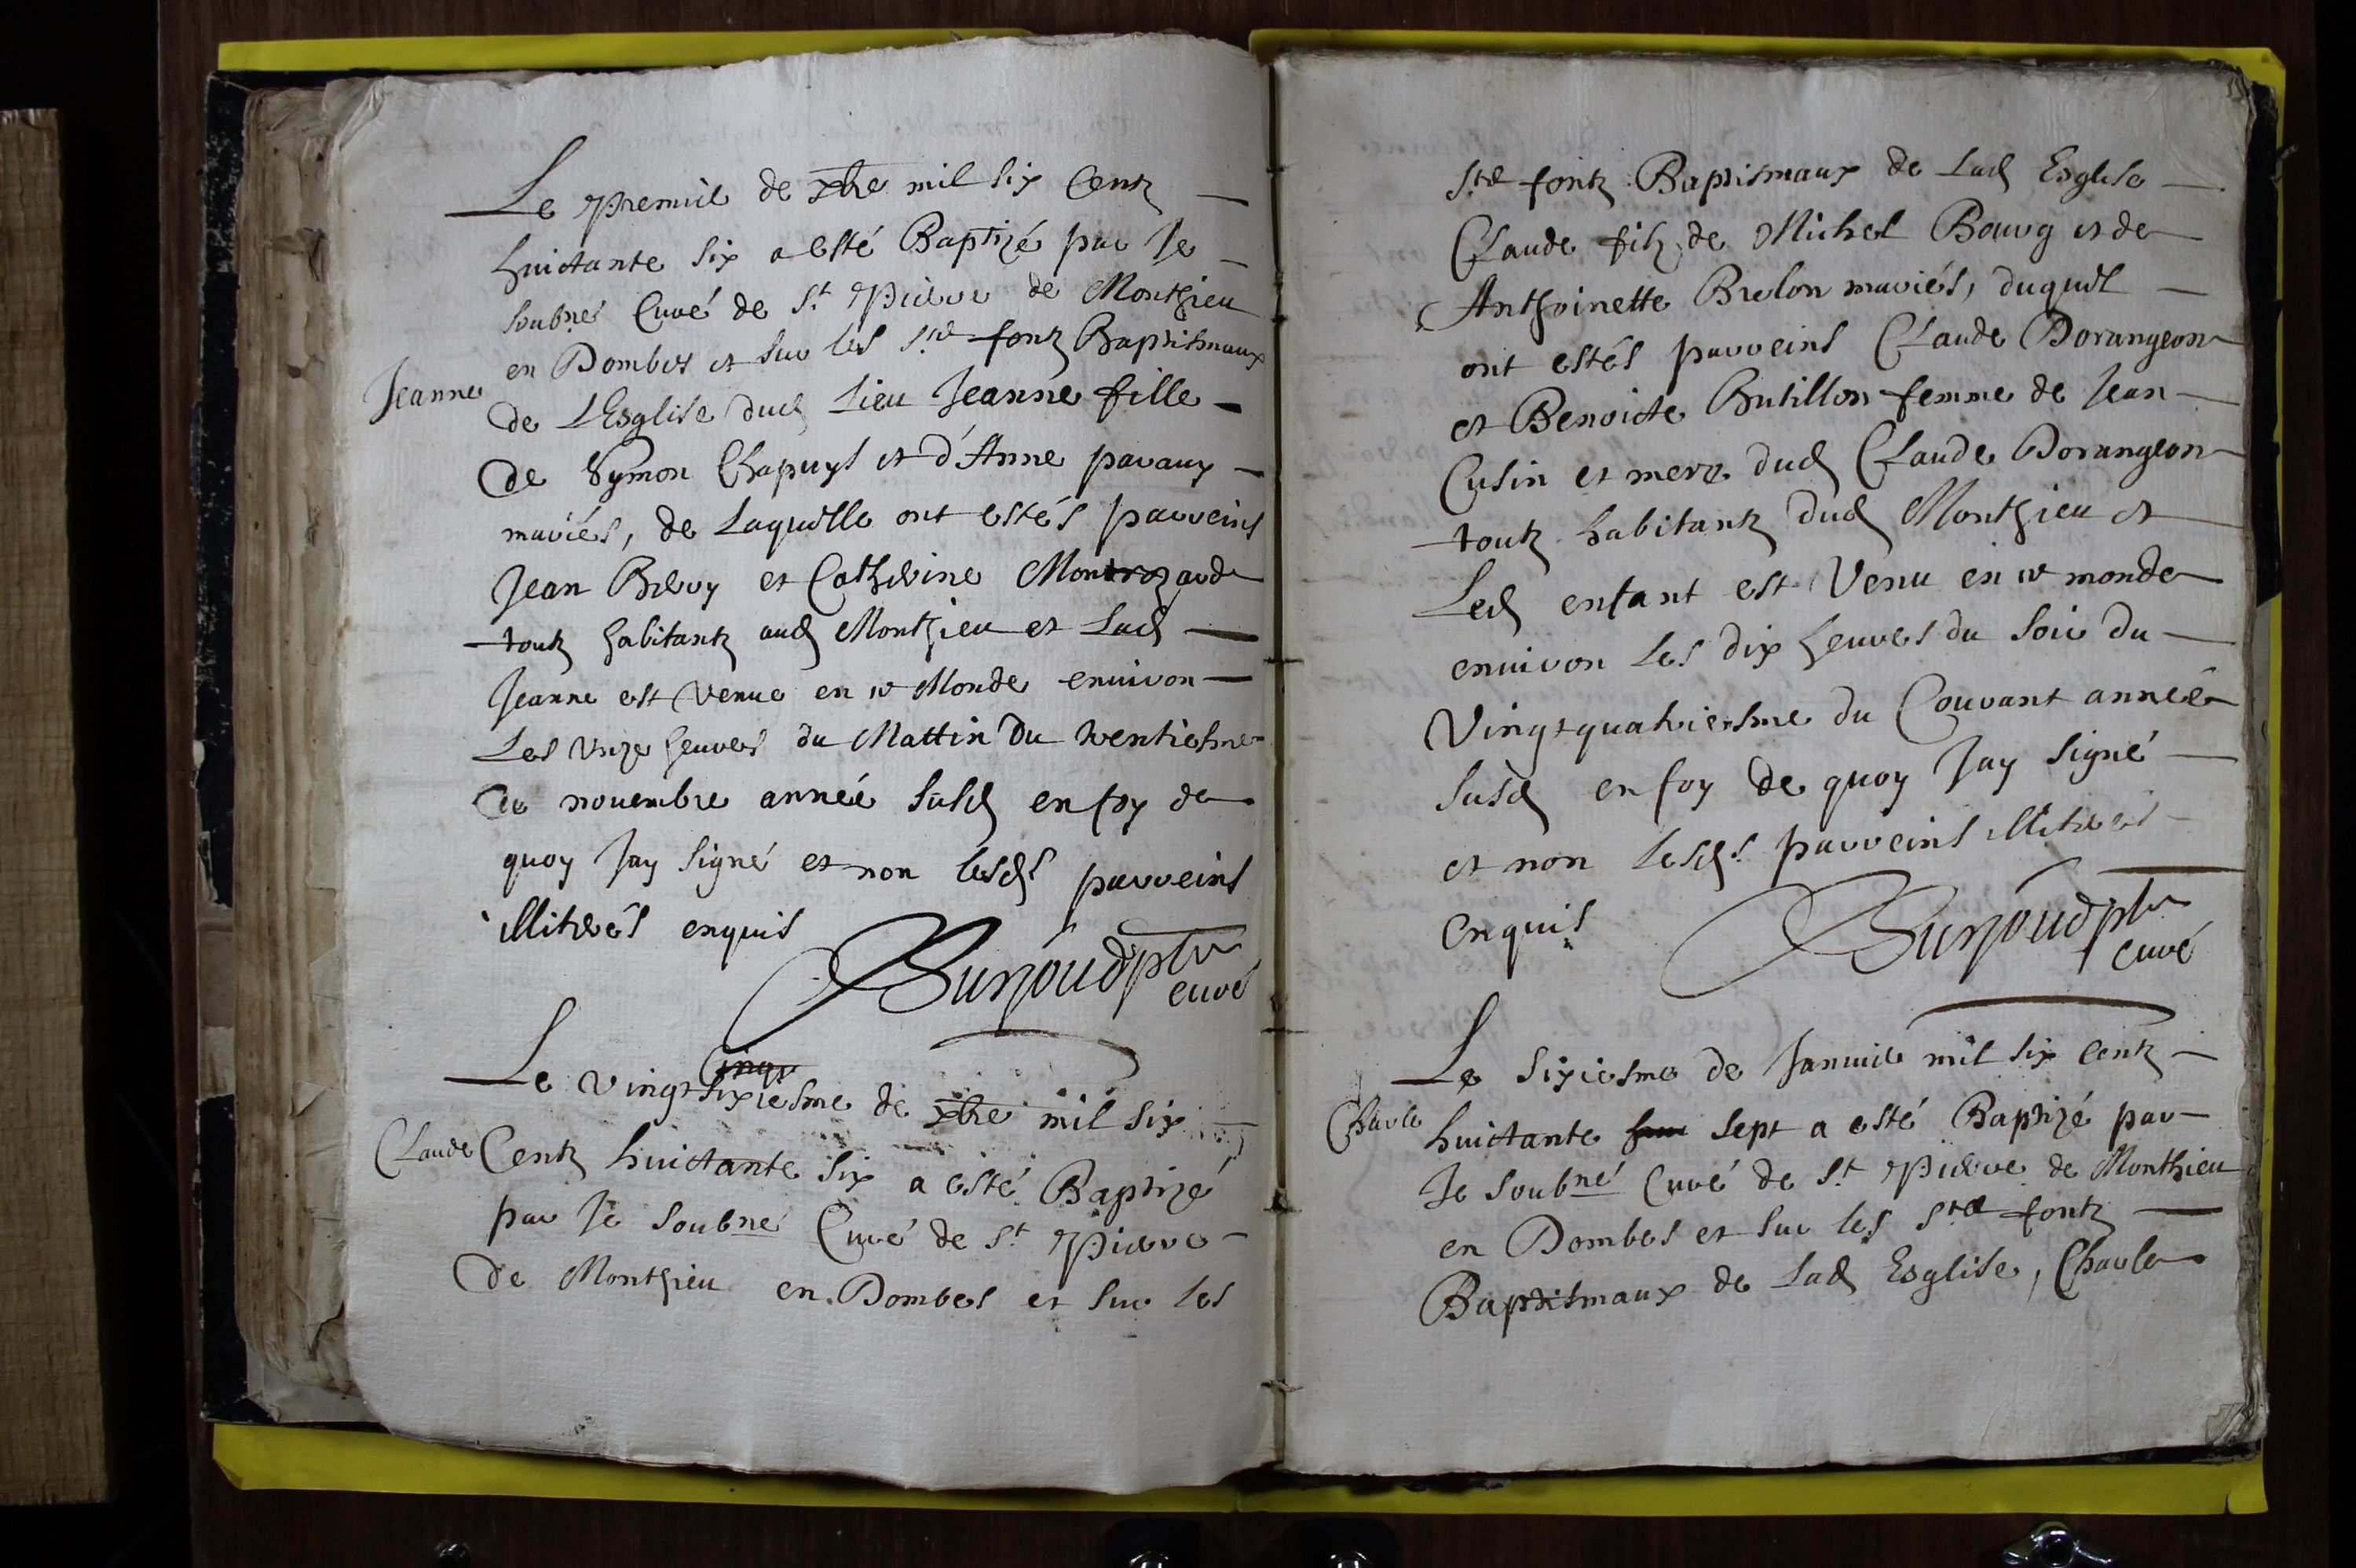 Le premier de xbre mil six Centz
huictante six a esté Baptizé par Je
soubné Curé de St Pierre de Monthieu
en Dombes et sur les Stes fontz Baptismaux
Jeanne
de L'Esglise dud Lieu Jeanne fille
de Symon Chapuys et d'Anne paraux
mariés, de Laquelle ont estés parreins
Jean Brevy et Catherine
toutz habitantz aud Monthieu et Lad
Jeanne est Venue en ce Monde environ
Les unze heures du Mattin du trentiesme
de novembre année susd en foy de
quoy Jay signé et non lesds parreins
illiterés enquis
Burjoud pbre
curé
Le vingt sixiesme de xbre mil six
Claude
Centz huictante six a esté Baptizé
par Je soubné Curé de St Pierre
de Monthieu en Dombes et sur les
Stes fontz Baptismaux de Lad Esglise
Claude filz de Michel Bourg et de
Anthoinette Brelon mariés, duquel
ont estés parreins Claude Dorangeon
et Benoicte Butillon femme de Jean
Cusin et mere dud Claude Dorangeon
toutz habitantz dud Monthieu et
Led enfant est Venu en ce monde
environ Les dix heures du soir du
Vingtquatriesme du Courant année
susd en foy de quoy Jay signé
et non Lesds parreins illiterés
enquis
Burjoud pbre
curé
Le sixiesme de Janvier mil six Centz
Charle
huictante sept a esté Baptizé par
Je soubné Curé de St Pierre de Monthieu
en Dombes et sur les Stes fontz
Baptismaux de Lad Esglise, Charle